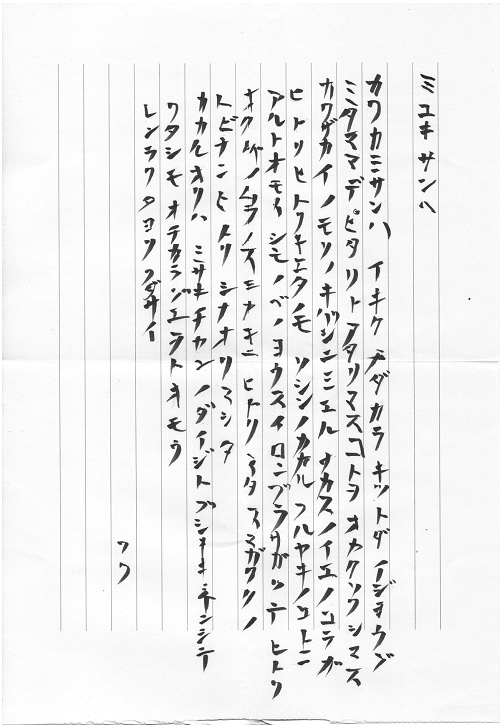 ミユキサンヘ
カワカミサンハ イキケ チダカラ キットダ イジョウブ
ミタママデ ピタリト アタリマスコトヲ オヤクソクシマス
カワザカイノモリノキバシニミエル ナカスノイエノコラガ
ヒトリヒトリキエタノモ ソシシノカカル フルヤキノコトニ
アルトオモイ シモノベノヨウスイロンブラサガッテ ヒトリ
オクヤノムラノスモナキニ ヒトリ イタ スミガワリノ
トビナンヒトリ シナオリマシタ
カカルオリハ ミサキチカンノダイジト ブシヲキネンシテ
ワタシモ オテカラジエラトオモウ
レンラクタヨリクダサイ
ワク